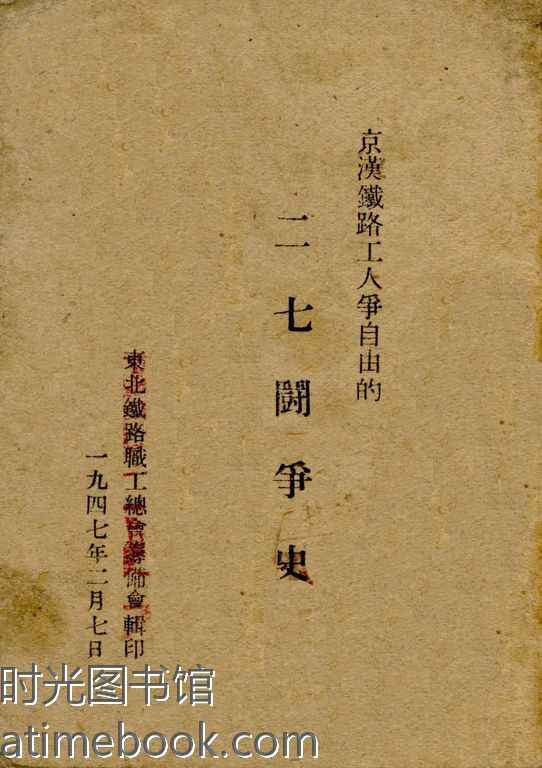 京漢鐵路工人爭自由的
二七鬪爭史
東北鐵路職工總會籌備會輯印
一九四七年二月七日
时光图书馆
atimebook.com